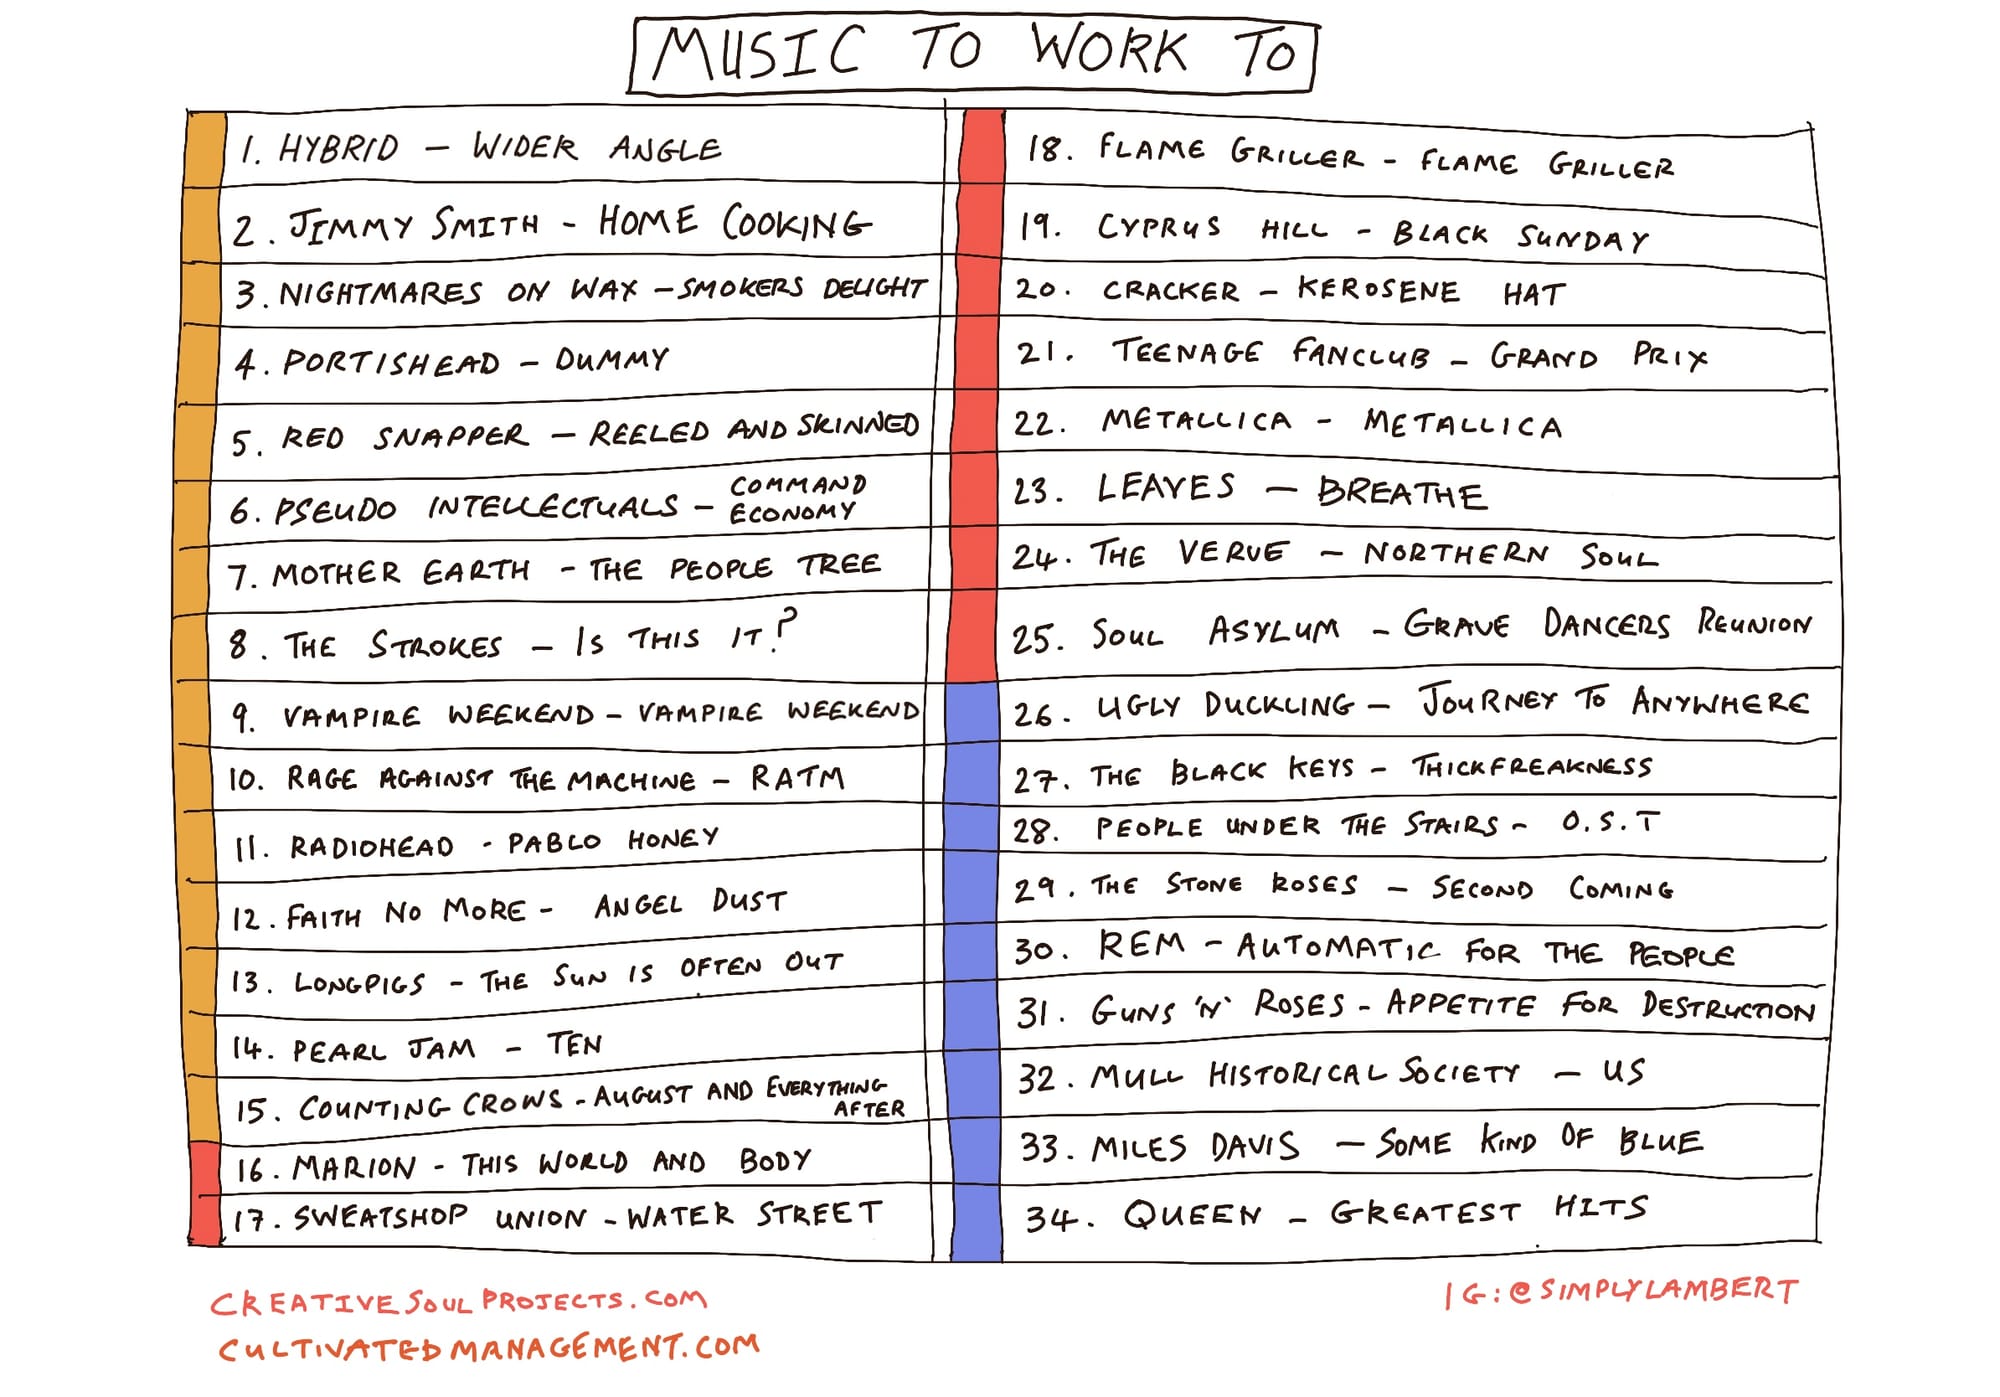 MUSIC TO WORK TO
1. HYBRID – WIDER ANGLE
2. JIMMY SMITH - HOME COOKING
3. NIGHTMARES ON WAX – SMOKERS DELIGHT
4. PORTISHEAD – DUMMY
5. RED SNAPPER – REELED AND SKINNED
6. PSEUDO INTELLECTUALS – COMMAND
ECONOMY
7. MOTHER EARTH - THE PEOPLE TREE
8. THE STROKES – IS THIS IT?
9. VAMPIRE WEEKEND – VAMPIRE WEEKEND
10. RAGE AGAINST THE MACHINE – RATM
11. RADIOHEAD - PABLO HONEY
12. FAITH NO MORE - ANGEL DUST
13. LONGPIGS - THE SUN IS OFTEN OUT
14. PEARL JAM - TEN
15. COUNTING CROWS - AUGUST AND EVERYTHING
AFTER
16. MARION - THIS WORLD AND BODY
17. SWEATSHOP UNION - WATER STREET
18. FLAME GRILLER - FLAME GRILLER
19. CYPRUS HILL - BLACK SUNDAY
20. CRACKER – KEROSENE HAT
21. TEENAGE FANCLUB – GRAND PRIX
22. METALLICA - METALLICA
23. LEAVES – BREATHE
24. THE VERVE – NORTHERN SOUL
25. SOUL ASYLUM - GRAVE DANCERS REUNION
26. UGLY DUCKLING – JOURNEY TO ANYWHERE
27. THE BLACK KEYS – THICKFREAKNESS
28. PEOPLE UNDER THE STAIRS – O.S.T
29. THE STONE ROSES – SECOND COMING
30. REM – AUTOMATIC FOR THE PEOPLE
31. GUNS 'N' ROSES - APPETITE FOR DESTRUCTION
32. MULL HISTORICAL SOCIETY – US
33. MILES DAVIS – SOME KIND OF BLUE
34. QUEEN – GREATEST HITS
CREATIVESOULPROJECTS.COM
CULTIVATEDMANAGEMENT.COM
IG:@SIMPLYLAMBERT